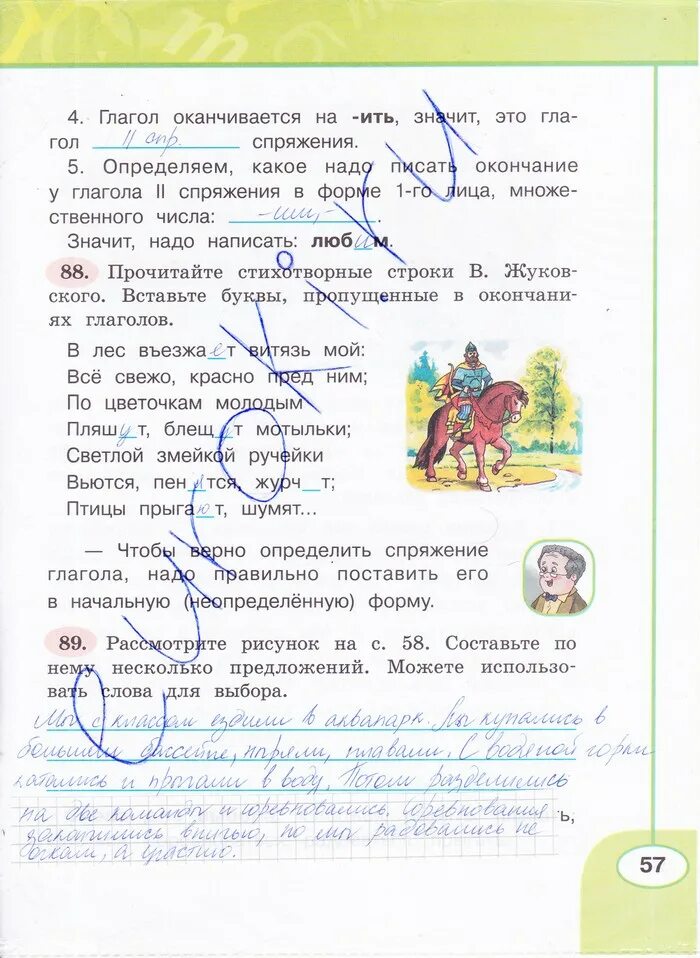 4. Глагол оканчивается на -ить, значит, это гла-
гол II спр. спряжения.
5. Определяем, какое надо писать окончание
у глагола II спряжения в форме 1-го лица, множе-
ственного числа: -им,-.
Значит, надо написать: любим.
88. Прочитайте стихотворные строки В. Жуков-
ского. Вставьте буквы, пропущенные в окончани-
ях глаголов.
В лес въезжает витязь мой:
Всё свежо, красно пред ним;
По цветочкам молодым
Пляшут, блещут мотыльки;
Светлой змейкой ручейки
Вьются, пенятся, журч_т;
Птицы прыгают, шумят...
— Чтобы верно определить спряжение
глагола, надо правильно поставить его
в начальную (неопределённую) форму.
89. Рассмотрите рисунок на с. 58. Составьте по
нему несколько предложений. Можете использо-
вать слова для выбора.
Мы с классом ездили в аквапарк. Мы купались в
большом бассейне, ныряли, плавали. С водяной горки
катались и прыгали в воду. Потом разделились
на две команды и соревновались. Соревнования
закончились ничью, но мы радовались не
очкам, а участию.
ь,
57
е и р о к и . к и